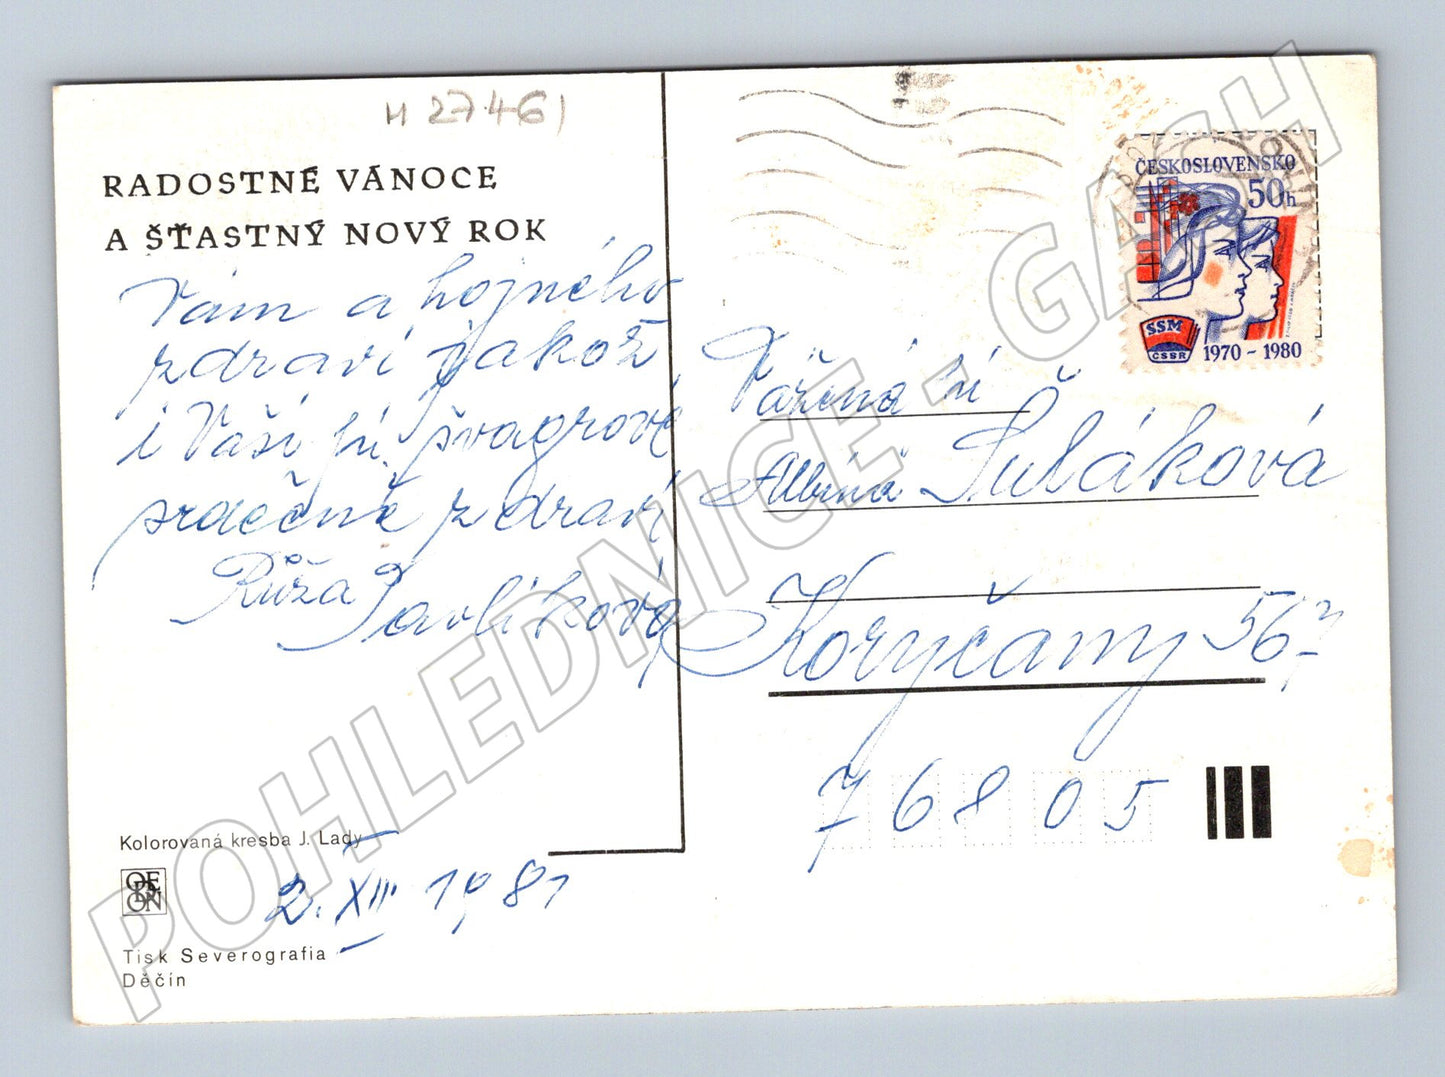 H 27461
RADOSTNÉ VÁNOCE
A ŠŤASTNÝ NOVÝ ROK
Vám a hojného
zdraví jakož
i Vaší pí. švagrové
srdečně zdraví
Růža Pavlíková
Kolorovaná kresba J. Lady
ODEON
2. XII 1981
Tisk Severografia
Děčín
ČESKOSLOVENSKO
50h
SSM
ČSSR
1970 - 1980
Vážená pí
Albína Šuláková
Koryčany 567
76805
POHLEDNICE - GASH